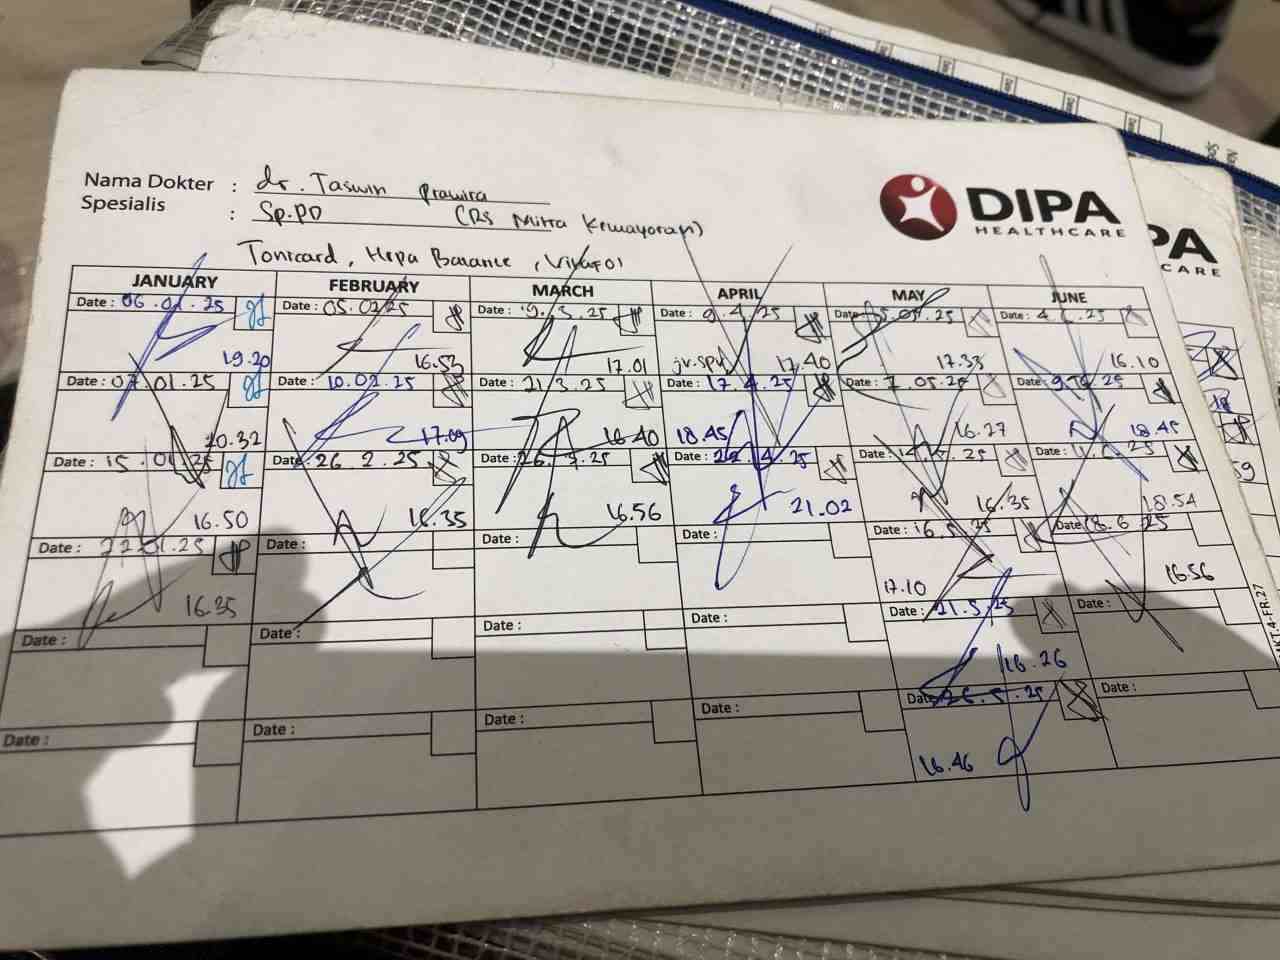 Nama Dokter : dr. Taswin Prawira
Spesialis : Sp.PD (RS Mitra Kemayoran)
DIPA
HEALTHCARE
Tonicard, Hepa Balance,
JANUARY FEBRUARY MARCH APRIL MAY JUNE
Date : 06.01.25 Date : 05.02.25 Date : 3.25 Date : 9.4.25 Date : 05.25 Date : 4.6.25
19.20 16.53 17.01 17.40 17.33 16.10
Date : 07.01.25 Date : 10.02.25 Date : 21.3.25 Date : 17.4.25 Date : 7.05.25 Date : 25
20.32 17.09 16.40 18.45 16.27 18.45
Date : 15.01.25 Date : 26.2.25 Date : 26.3.25 Date : 22.4.25 Date : 25 Date : 25
16.50 16.35 16.56 21.02 16.35 18.54
Date : 22.01.25 Date : Date : Date : Date : 16.5.25 Date : 18.6.25
16.35 17.10 16.56
Date : Date : Date : Date : Date : 21.5.25 Date :
16.26
Date : Date : Date : Date : Date : 26.5.25 Date :
16.46
PA
CARE